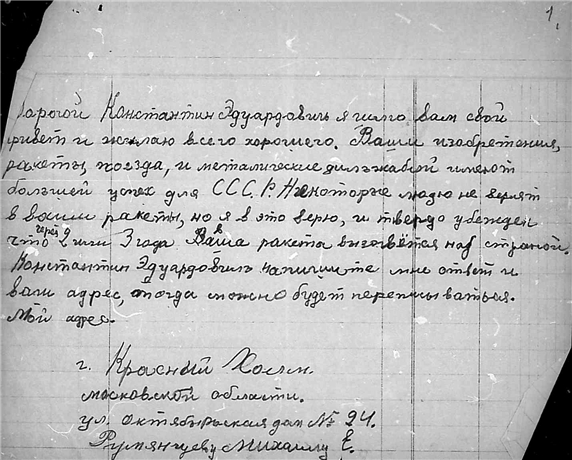 1
Дорогой Константин Эдуардовичь я шлю вам свой
привет и желаю всего хорошего. Ваши изобретения,
ракеты, поезда, и металические дирижабли имеют
большей успех для С С С Р. Некоторые людю не верят
в ваши ракеты, но я в это верю, и твердо убежден
что через 2 или 3 года Ваша ракета взовьётся над страной.
Константин Эдуардовичь напишите мне ответ и
ваш адрес, тогда можно будет переписываться.
Мой адрес.
г. Красный Холм.
московской области.
ул. октябрьская дом № 24.
Румянцеву Михаилу Е.